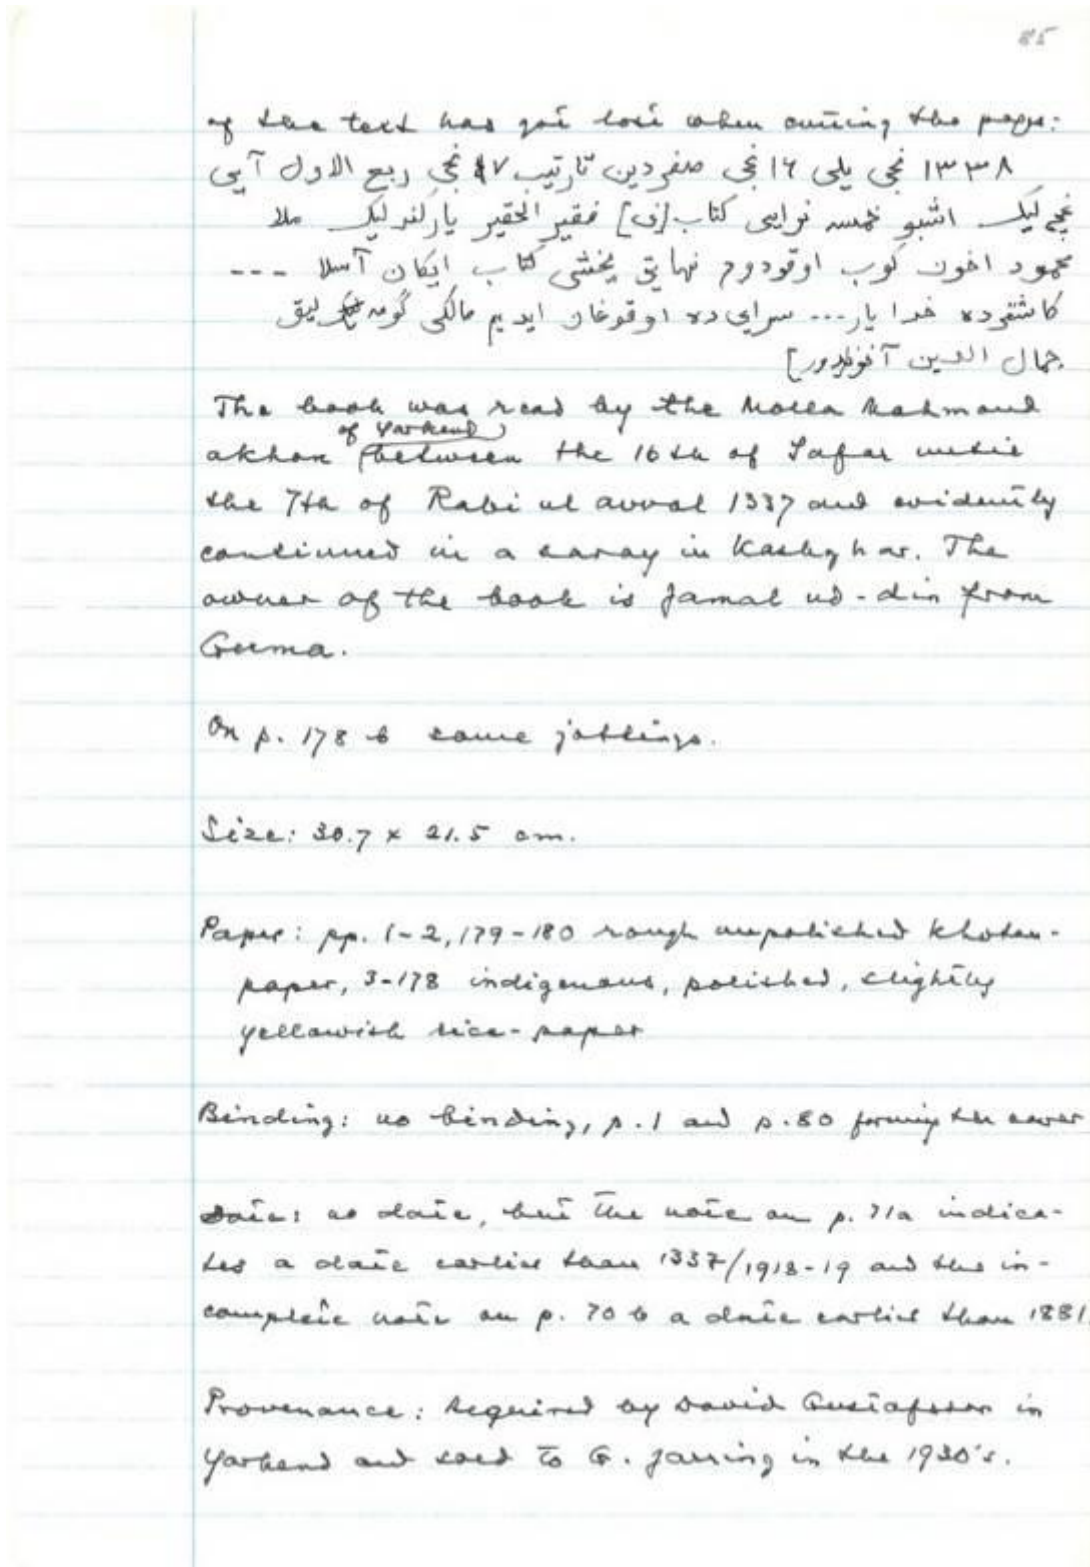 85
of the text has got lost when cutting the pages:
١٣٣٨ نجى يلى ١٦ نجى صفردين تارتيب ٧ نجى ربع الاول آيى
نجى ليك اشبو خمسه نوايى كتاب [نى] فقير الحقير ياركندليك ملا
محمود اخون كوب اوقودوم نهايتى يخشى كتاب ايكان آسلا ---
كاشقرده خدا يار... سرايى ده اوقوغان ايديم مالكى گومه ليق
جمال الدين آخوندور]
The book was read by the Molla Mahmoud
of Yarkend
akhon between the 16th of Safar until
the 7th of Rabi ul avval 1337 and evidently
continued in a saray in Kashghar. The
owner of the book is Jamal ud-din from
Guma.
On p. 178 b some jottings.
Size: 30.7 x 21.5 cm.
Paper: pp. 1-2, 179-180 rough unpolished Khotan-
paper, 3-178 indigenous, polished, slightly
yellowish rice-paper
Binding: no binding, p. 1 and p. 80 forming the cover
Date: no date, but the note on p. 71a indica-
tes a date earlier than 1337/1918-19 and the in-
complete note on p. 70 b a date earlier than 1881.
Provenance: Acquired by David Gustafsson in
Yarkend and sold to G. Jarring in the 1930's.